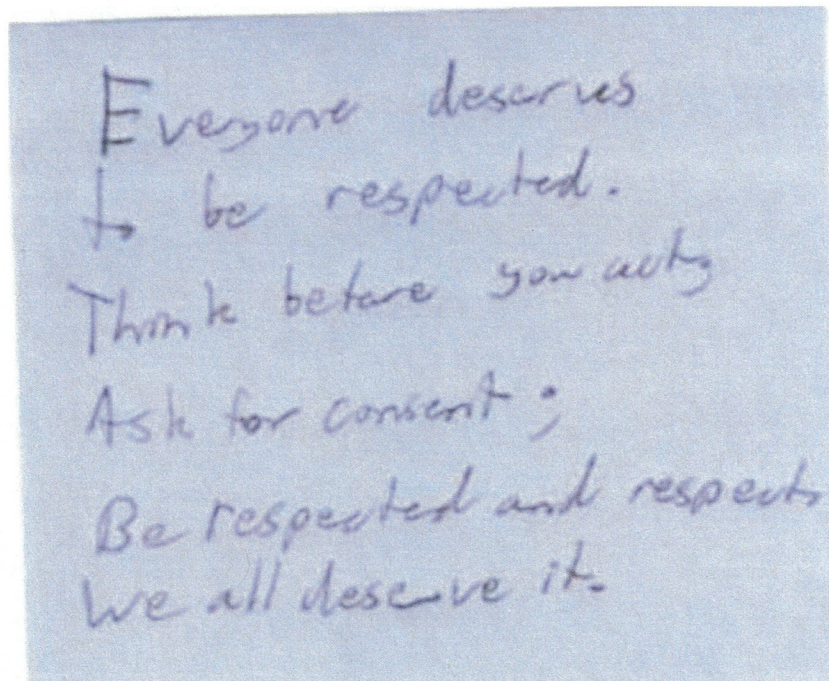 Everyone deserves
to be respected.
Think before you act,
Ask for consent;
Be respected and respect,
We all deserve it.